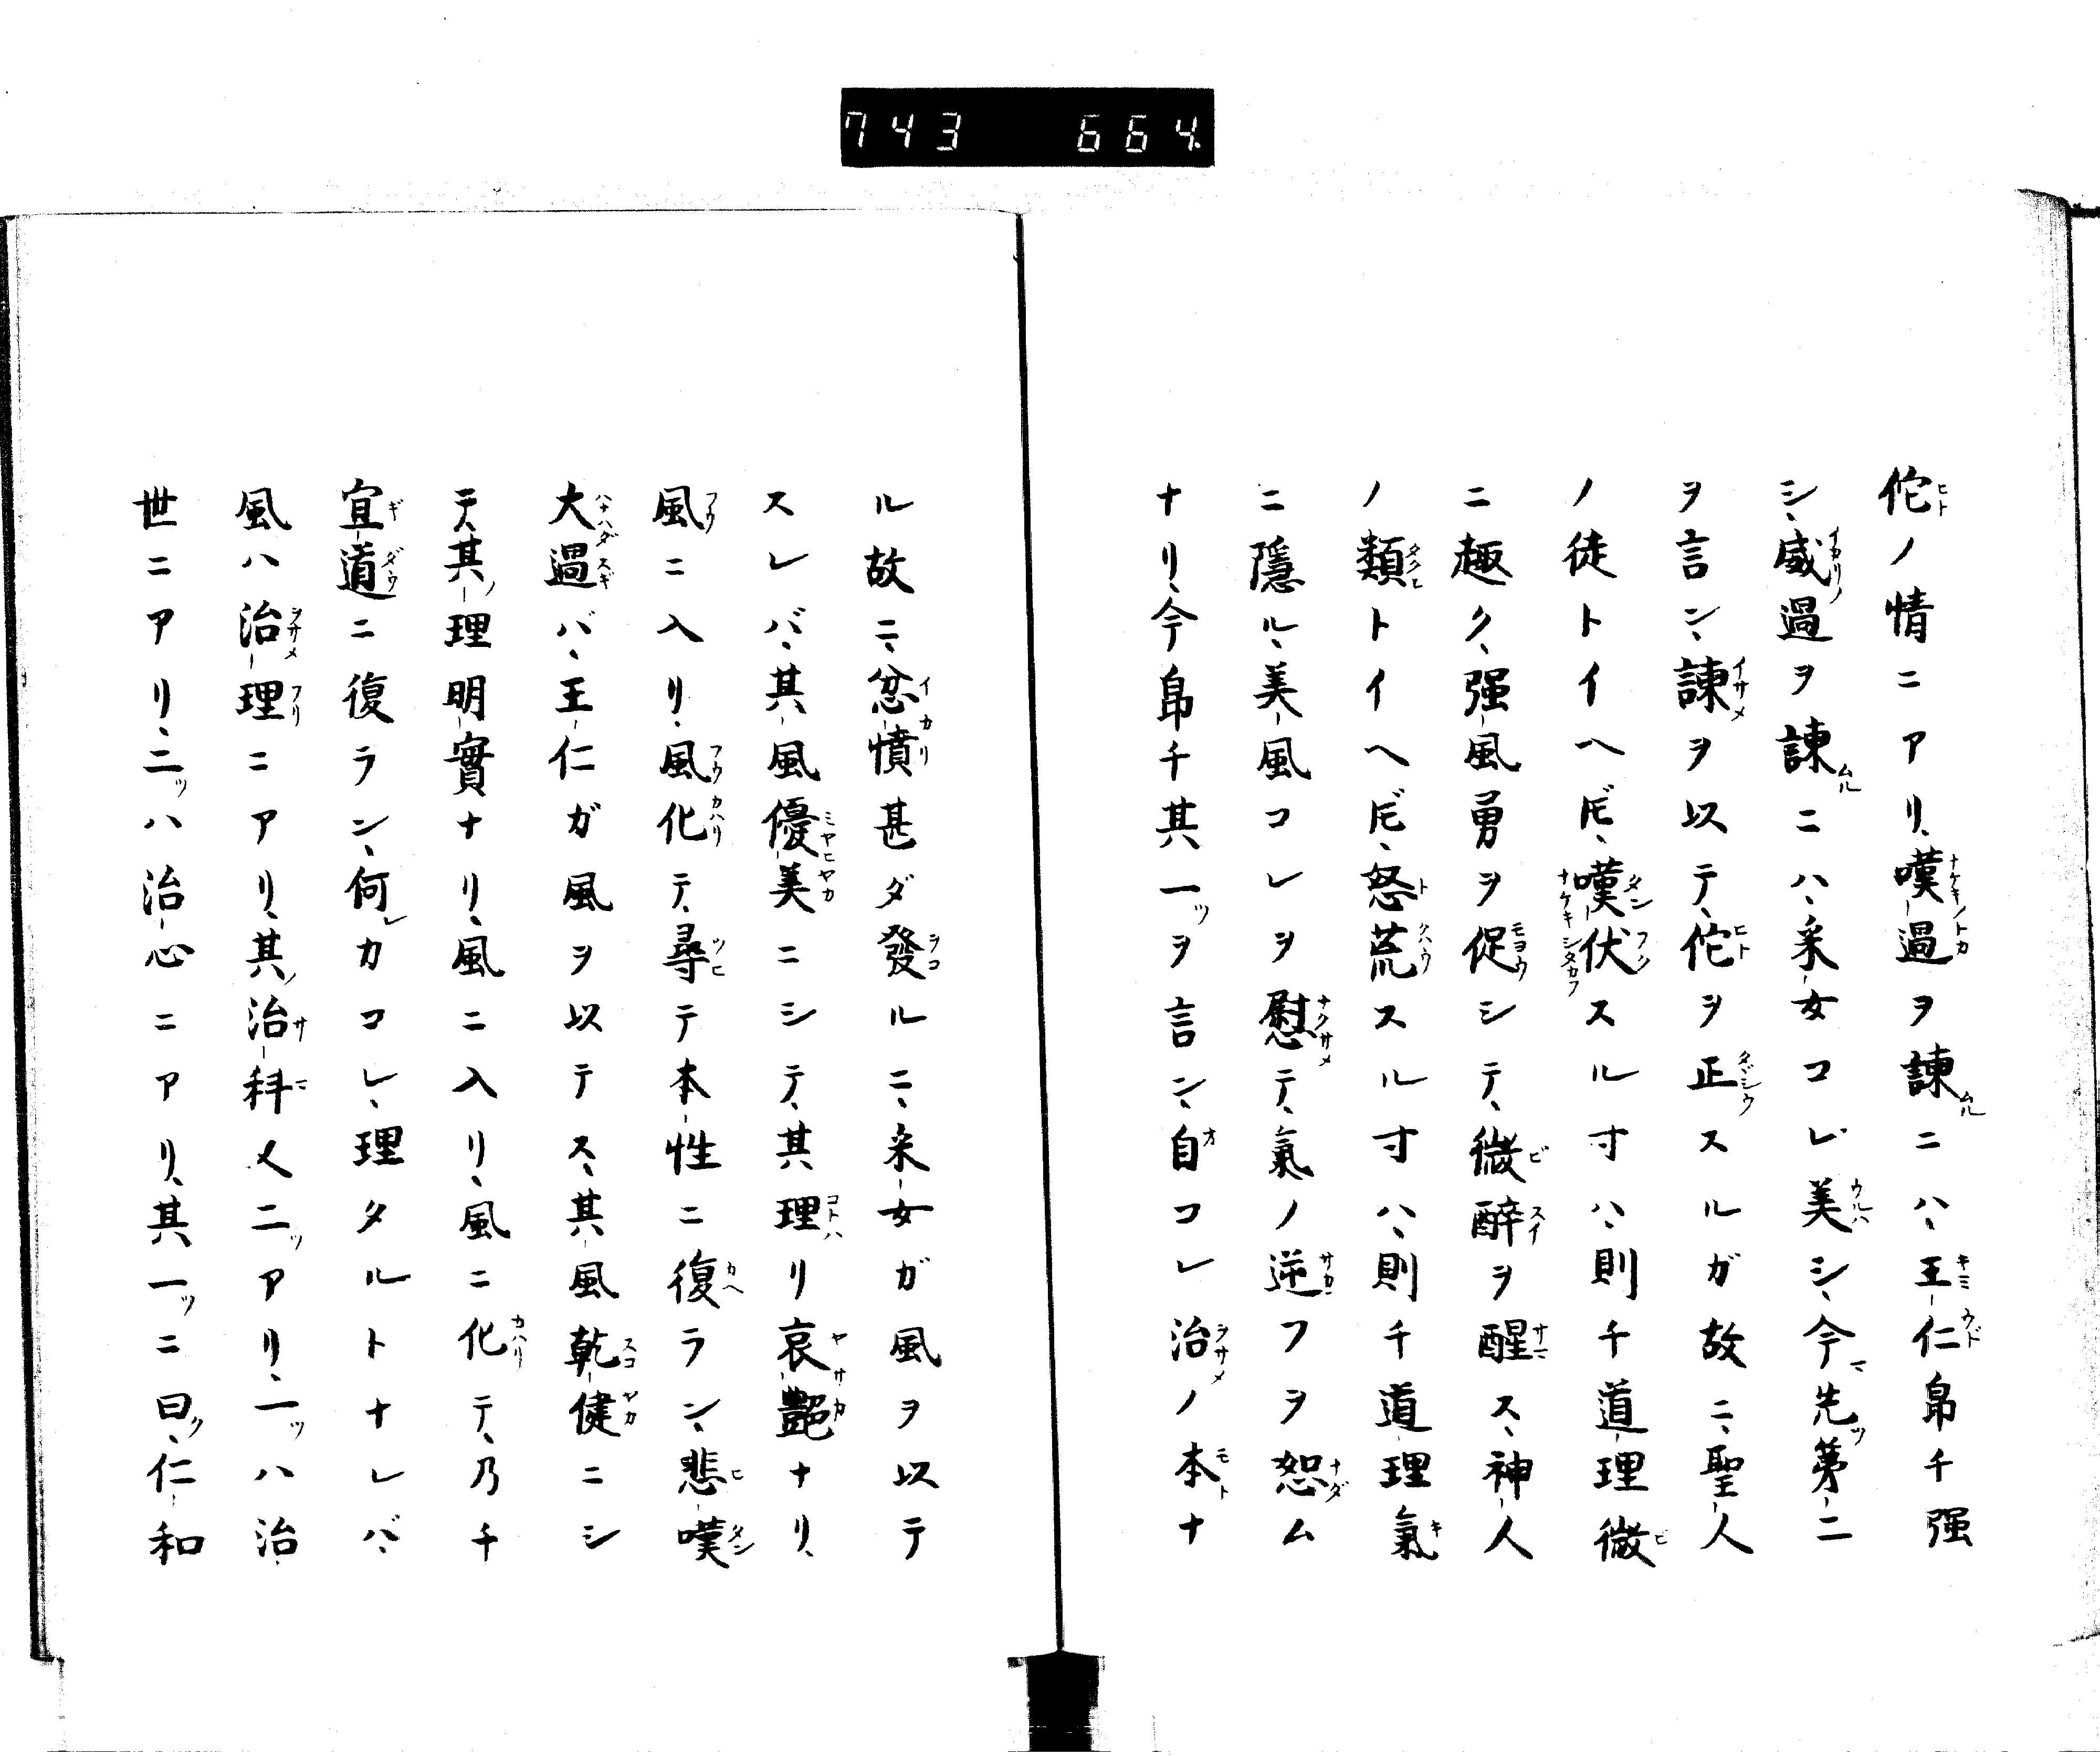 743 664.
佗ノ情ニアリ、嘆過ヲ諫ニハ、王仁帛チ强
シ、威過ヲ諫ニハ、采女コレ美シ、今先第二
ヲ言ン、諫ヲ以テ、佗ヲ正スルガ故ニ、聖人
ノ徒トイヘ𪜈、嘆伏スル寸ハ、則チ道理微
ニ趣ク、强風勇ヲ促シテ、微醉ヲ醒ス、神人
ノ類トイヘ𪜈、怒荒スル寸ハ、則チ道理氣
ニ隱ル、美風コレヲ慰テ、氣ノ逆フヲ恕ム
ナリ、今帛チ其一ッヲ言ン、自コレ治ノ本ナ
ル故ニ、忿憤甚ダ發ルニ、采女ガ風ヲ以テ
スレバ、其風優美ニシテ、其理リ哀艷ナリ、
風ニ入リ、風化テ、尋テ本性ニ復ラン、悲嘆
大過バ、王仁ガ風ヲ以テス、其風乾健ニシ
テ、其理明實ナリ、風ニ入リ、風ニ化テ、乃チ
宜道ニ復ラン、何レカコレ、理タルトナレバ、
風ハ治理ニアリ、其治科乂二ッアリ、一ッハ治
世ニアリ、二ッハ治心ニアリ、其一ッニ曰ク、仁和